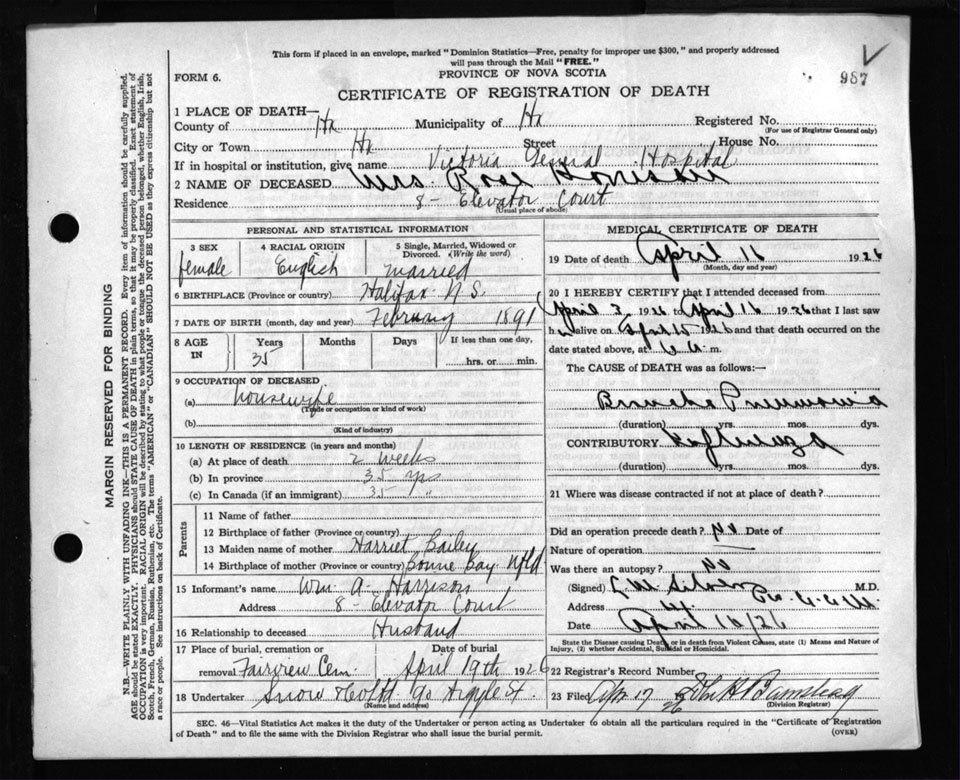 This form if placed in an envelope, marked "Dominion Statistics—Free, penalty for improper use $300," and properly addressed
will pass through the Mail "FREE."
FORM 6.
PROVINCE OF NOVA SCOTIA
987
CERTIFICATE OF REGISTRATION OF DEATH
1 PLACE OF DEATH—
County of Hx Municipality of Hx Registered No.
(For use of Registrar General only)
City or Town Hx Street House No.
If in hospital or institution, give name Victoria General Hospital
2 NAME OF DECEASED Mrs. Rose
Residence 8 - Elevator Court
(Usual place of abode)
PERSONAL AND STATISTICAL INFORMATION
3 SEX 4 RACIAL ORIGIN 5 Single, Married, Widowed or
Divorced. (Write the word)
female English married
6 BIRTHPLACE (Province or country) Halifax N.S.
7 DATE OF BIRTH (month, day and year) February 1891
8 AGE
IN
Years Months Days If less than one day,
35 hrs. or min.
9 OCCUPATION OF DECEASED
(a) housewife
(Trade or occupation or kind of work)
(b)
(Kind of industry)
10 LENGTH OF RESIDENCE (in years and months)
(a) At place of death 2 weeks
(b) In province 35 yrs
(c) In Canada (if an immigrant) 35 "
Parents
11 Name of father
12 Birthplace of father (Province or country)
13 Maiden name of mother Harriet Bailey
14 Birthplace of mother (Province or country) Bonne Bay Nfld
15 Informant's name Wm. A. Harrison
Address 8 - Elevator Court
16 Relationship to deceased Husband
17 Place of burial, cremation or Date of burial
removal Fairview Cem. April 19th 1926
18 Undertaker Snow & Co Ltd. 90 Argyle St.
(Name and address)
MEDICAL CERTIFICATE OF DEATH
19 Date of death April 16 1926
(Month, day and year)
20 I HEREBY CERTIFY that I attended deceased from
April 3 1926 to April 16 1926 that I last saw
h alive on April 15 1926 and that death occurred on the
date stated above, at 6 a. m.
The CAUSE of DEATH was as follows:—
Broncho Pneumonia
(duration) yrs. mos. dys.
CONTRIBUTORY Influenza
(duration) yrs. mos. dys.
21 Where was disease contracted if not at place of death?
Did an operation precede death? No Date of
Nature of operation
Was there an autopsy? No
(Signed) M.D.
Address
Date April 16/26
State the Disease causing Death, or in death from Violent Causes, state (1) Means and Nature of
Injury, (2) whether Accidental, Suicidal or Homicidal.
22 Registrar's Record Number
23 Filed Apr 17 26 John H.
(Division Registrar)
SEC. 46—Vital Statistics Act makes it the duty of the Undertaker or person acting as Undertaker to obtain all the particulars required in the "Certificate of Registration
of Death" and to file the same with the Division Registrar who shall issue the burial permit.
(OVER)
MARGIN RESERVED FOR BINDING
N.B.—WRITE PLAINLY WITH UNFADING INK—THIS IS A PERMANENT RECORD. Every item of information should be carefully supplied.
AGE should be stated EXACTLY. PHYSICIANS should STATE CAUSE OF DEATH in plain terms, so that it may be properly classified. Exact statement of
OCCUPATION is very important. RACIAL ORIGIN will be described by stating to what people or tongue the deceased person belonged, whether English, Irish,
Scotch, French, German, Russian, Ruthenian, etc. The terms "AMERICAN" or "CANADIAN" SHOULD NOT BE USED as they express citizenship but not
a race or people. See instructions on back of Certificate.